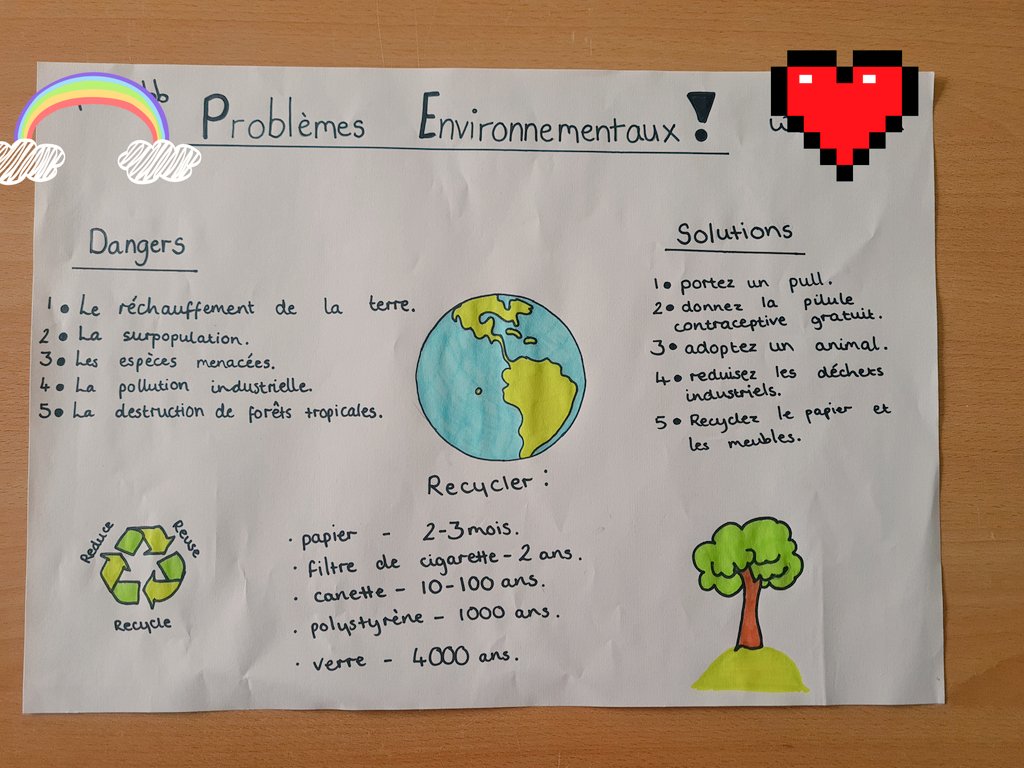 Problèmes Environnementaux!
Dangers
1 • Le réchauffement de la terre.
2 • La surpopulation.
3 • Les espèces menacées.
4 • La pollution industrielle.
5 • La destruction de forêts tropicales.
Solutions
1 • portez un pull.
2 • donnez la pilule
contraceptive gratuit.
3 • adoptez un animal.
4 • reduisez les déchets
industriels.
5 • Recyclez le papier et
les meubles.
Recycler :
· papier - 2-3 mois.
· Filtre de cigarette - 2 ans.
· canette - 10-100 ans.
· polystyrène - 1000 ans.
· verre - 4000 ans.
Reduce
Reuse
Recycle